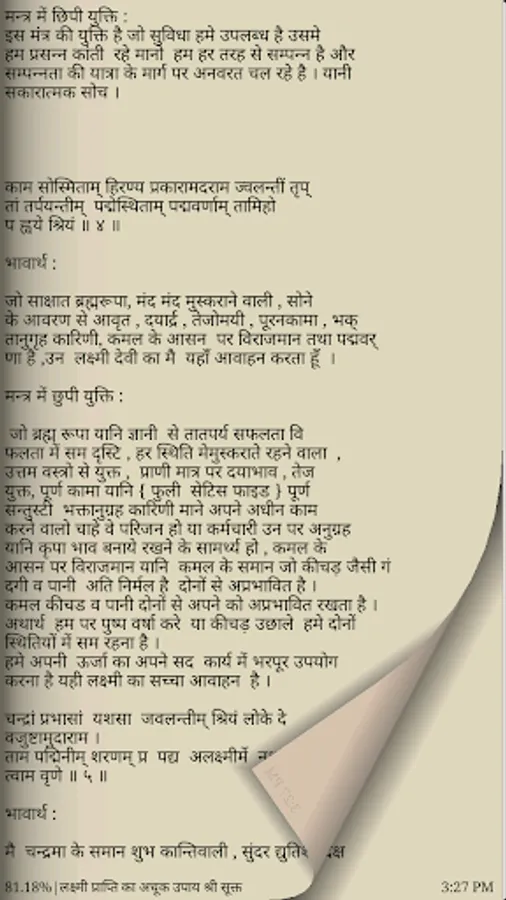 मन्त्र में छिपी युक्ति :
इस मंत्र की युक्ति है जो सुविधा हमे उपलब्ध है उसमे
हम प्रसन्न काती रहे मानो हम हर तरह से सम्पन्न है और
सम्पन्नता की यात्रा के मार्ग पर अनवरत चल रहे है । यानी
सकारात्मक सोच ।
काम सोस्मिताम् हिरण्य प्रकारामदराम ज्वलन्तीं तृप्
तां तर्पयन्तीम् पद्मेस्थिताम् पद्मवर्णाम् तामिहो
प ह्वये श्रियं ॥ ४ ॥
भावार्थ :
जो साक्षात ब्रह्मरूपा, मंद मंद मुस्कराने वाली , सोने
के आवरण से आवृत , दयार्द्र , तेजोमयी , पूरनकामा , भक्
तानुगृह कारिणी, कमल के आसन पर विराजमान तथा पद्मवर्
णा है ,उन लक्ष्मी देवी का मै यहाँ आवाहन करता हूँ ।
मन्त्र में छुपी युक्ति :
जो ब्रह्म रूपा यानि ज्ञानी से तातपर्य सफलता वि
फलता में सम दृस्टि , हर स्थिति मेमुस्कराते रहने वाला ,
उत्तम वस्त्रो से युक्त , प्राणी मात्र पर दयाभाव , तेज
युक्त, पूर्ण कामा यानि { फुली सेटिस फाइड } पूर्ण
सन्तुस्टी भक्तानुग्रह कारिणी माने अपने अधीन काम
करने वालो चाहे वे परिजन हो या कर्मचारी उन पर अनुग्रह
यानि कृपा भाव बनाये रखने के सामर्थ्य हो , कमल के
आसन पर विराजमान यानि कमल के समान जो कीचड़ जैसी गं
दगी व पानी अति निर्मल है दोनों से अप्रभावित है ।
कमल कीचड व पानी दोनों से अपने को अप्रभावित रखता है ।
अथार्थ हम पर पुष्प वर्षा करे या कीचड़ उछाले हमे दोनों
स्थितियों में सम रहना है ।
हमे अपनी ऊर्जा का अपने सद कार्य में भरपूर उपयोग
करना है यही लक्ष्मी का सच्चा आवाहन है ।
चन्द्रां प्रभासां यशसा जवलन्तीम् श्रियं लोके दे
वजुष्टामुदाराम ।
ताम पद्मिनीम् शरणम् प्र पद्य अलक्ष्मीर्मे
त्वाम वृणे ॥ ५ ॥
भावार्थ :
मै चन्द्रमा के समान शुभ कान्तिवाली , सुंदर
81.18% | लक्ष्मी प्राप्ति का अचूक उपाय श्री सूक्त
3:27 PM